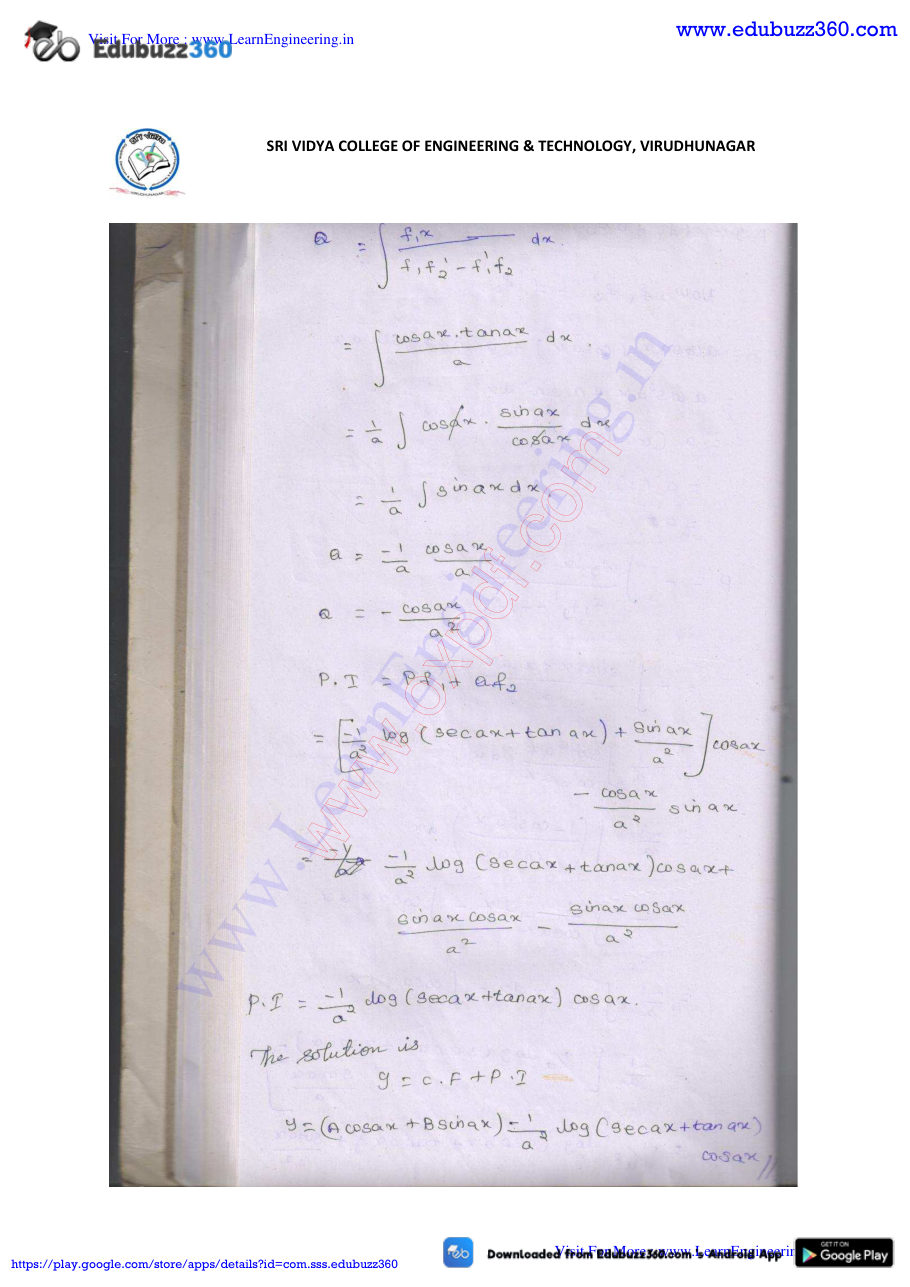 Visit For More : www.LearnEngineering.in
Edubuzz360
www.edubuzz360.com
SRI VIDYA COLLEGE OF ENGINEERING & TECHNOLOGY, VIRUDHUNAGAR
Q = ∫ f₁x / (f₁f₂' − f₁'f₂) dx.
= ∫ cosax.tanax / a dx.
= 1/a ∫ cosax . sinax / cosax dx
= 1/a ∫ sinax dx.
Q = -1/a cosax / a
Q = - cosax / a²
P.I = Pf₁ + Qf₂
= [-1/a² log (secax + tan ax) + sin ax / a²] cosax
- cosax / a² sin ax.
= -1/a² log (secax + tanax) cosax +
sinax cosax / a² − sinax cosax / a²
P.I = -1/a² log (secax + tanax) cosax.
The solution is
y = C.F + P.I
y = (A cosax + B sinax) -1/a² log (secax + tan ax)
cosax //
www.LearnEngineering.in
www.oxpdf.com
Downloaded from Edubuzz360.com 's Android App
Visit For More : www.LearnEngineerin
GET IT ON
Google Play
https://play.google.com/store/apps/details?id=com.sss.edubuzz360